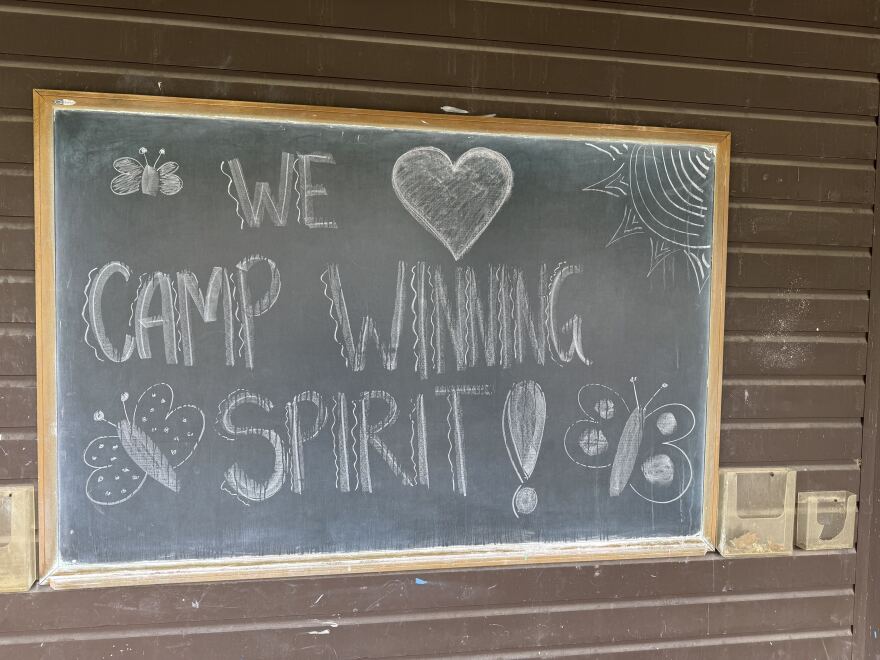 WE ♥
CAMP WINNING
SPIRIT!